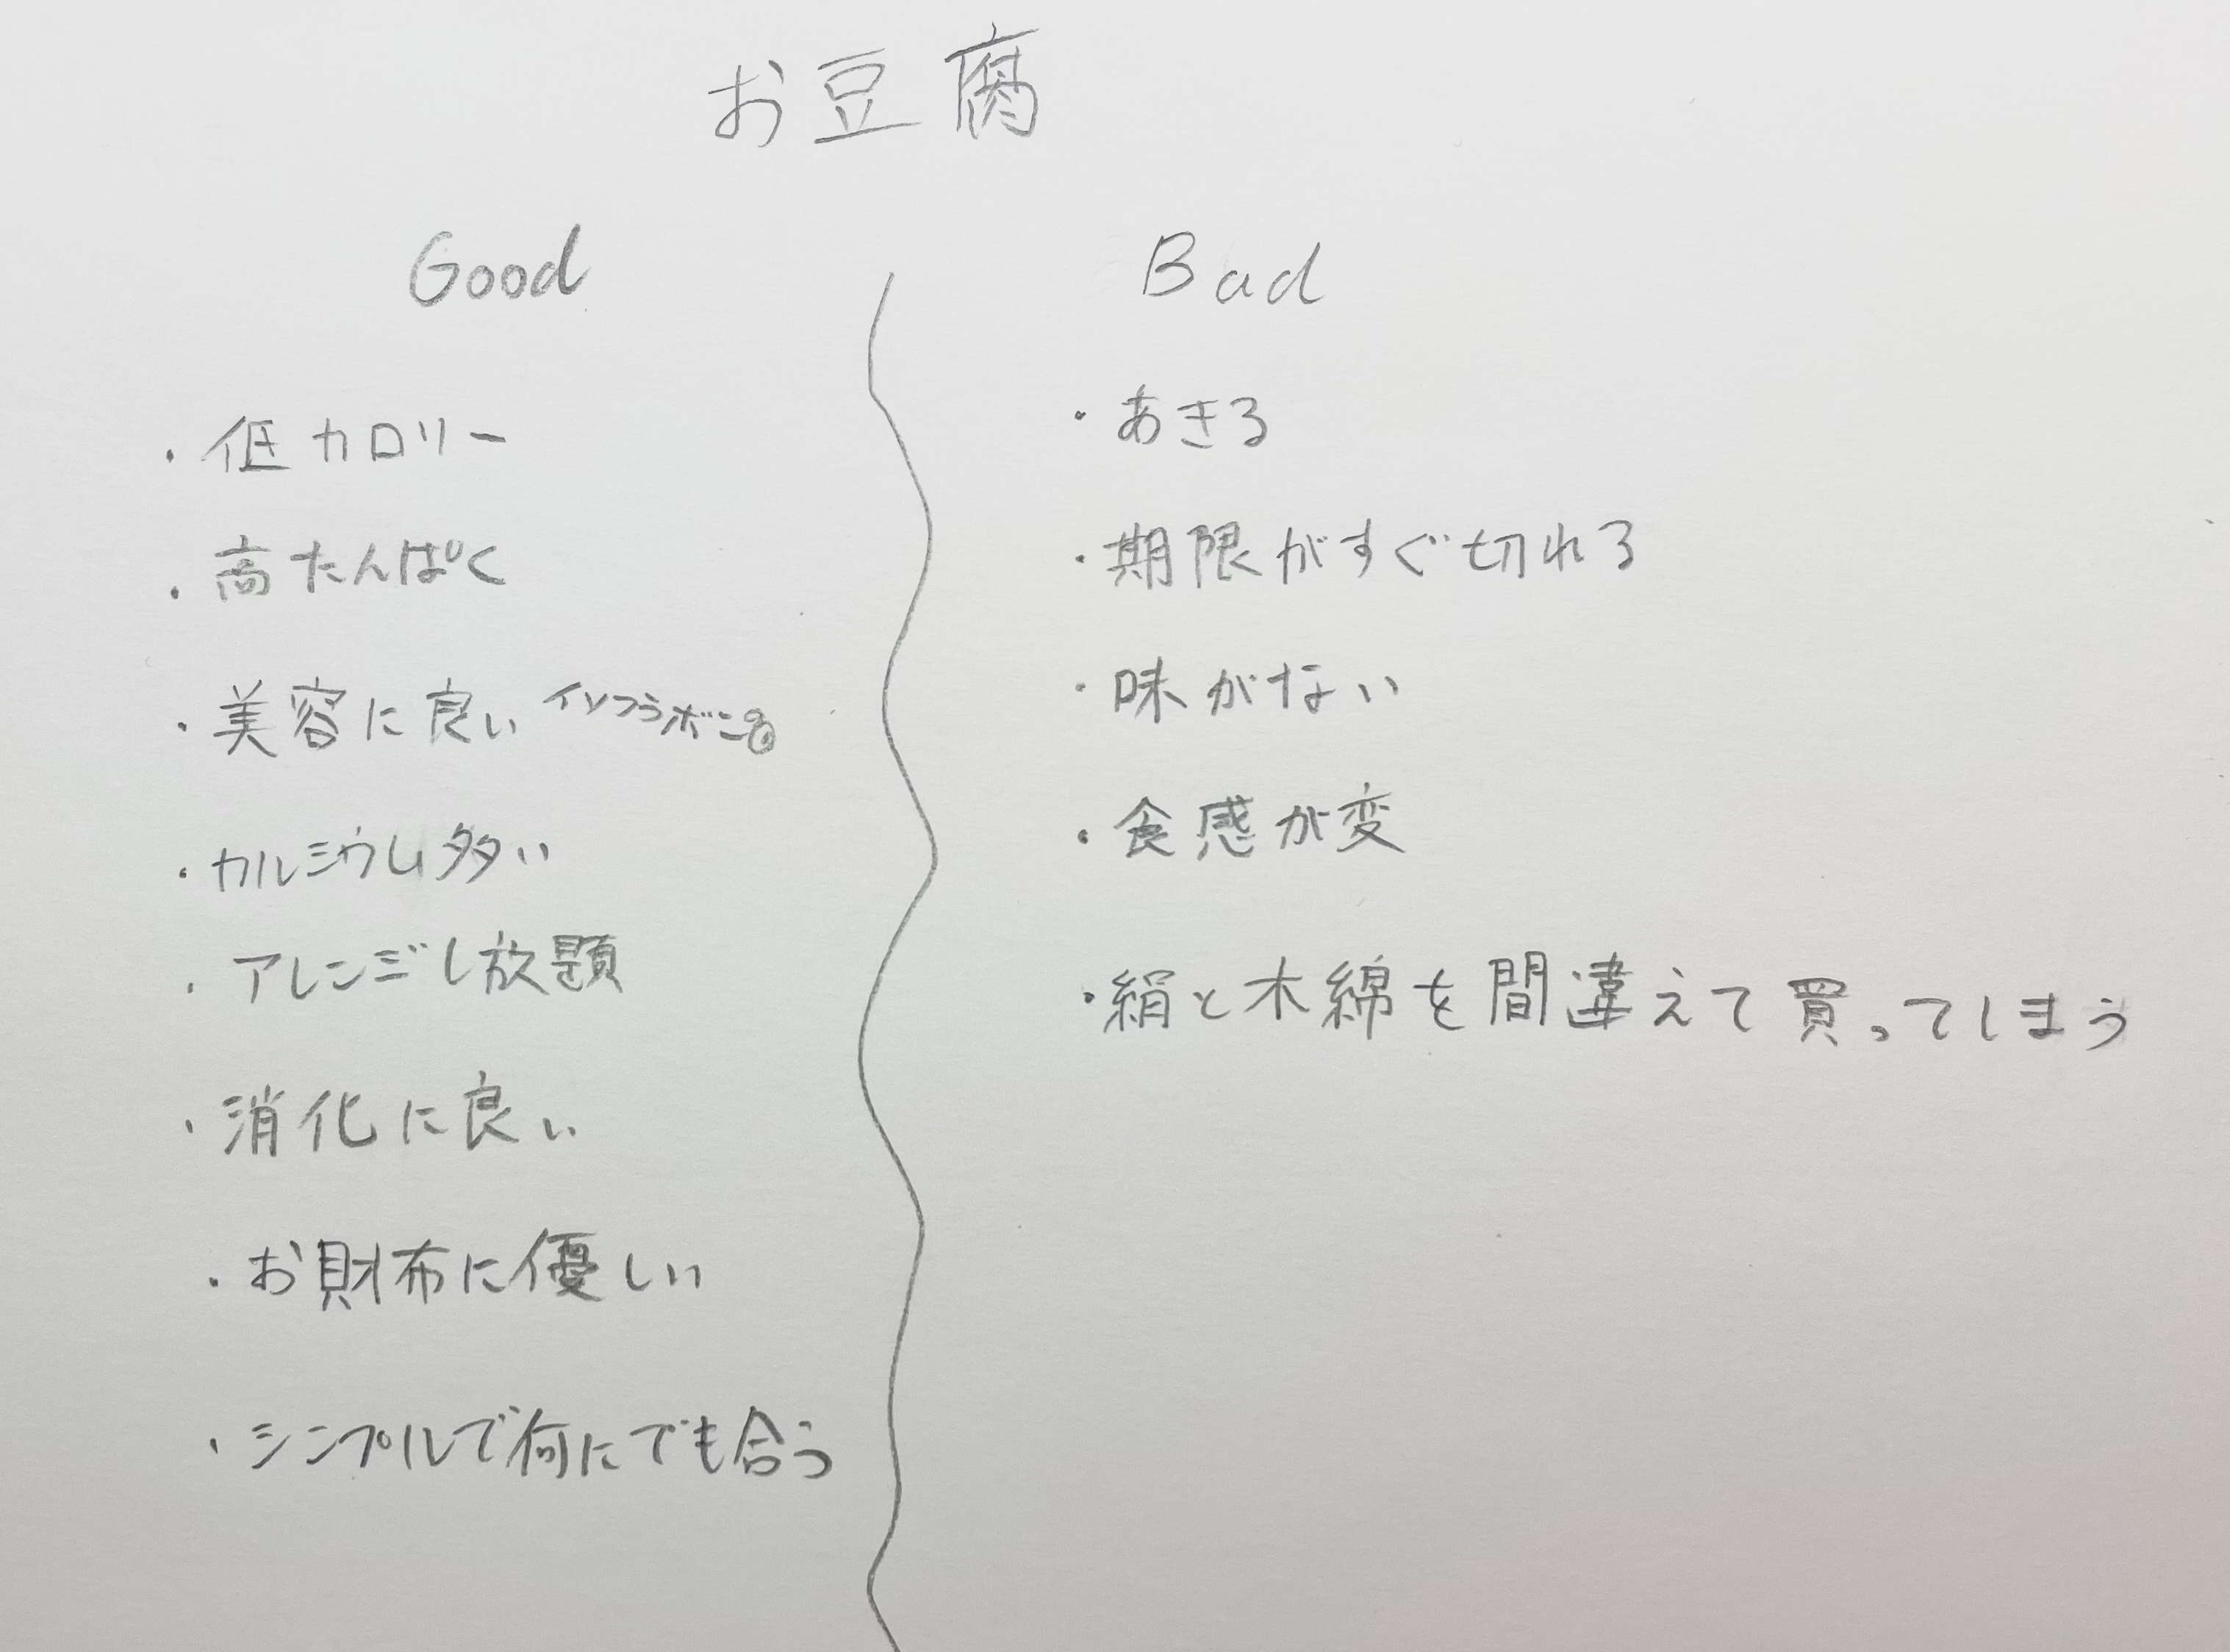 お豆腐
Good
・低カロリー
・高たんぱく
・美容に良い イソフラボン
・カルシウム多い
・アレンジし放題
・消化に良い
・お財布に優しい
・シンプルで何にでも合う
Bad
・あきる
・期限がすぐ切れる
・味がない
・食感が変
・絹と木綿を間違えて買ってしまう